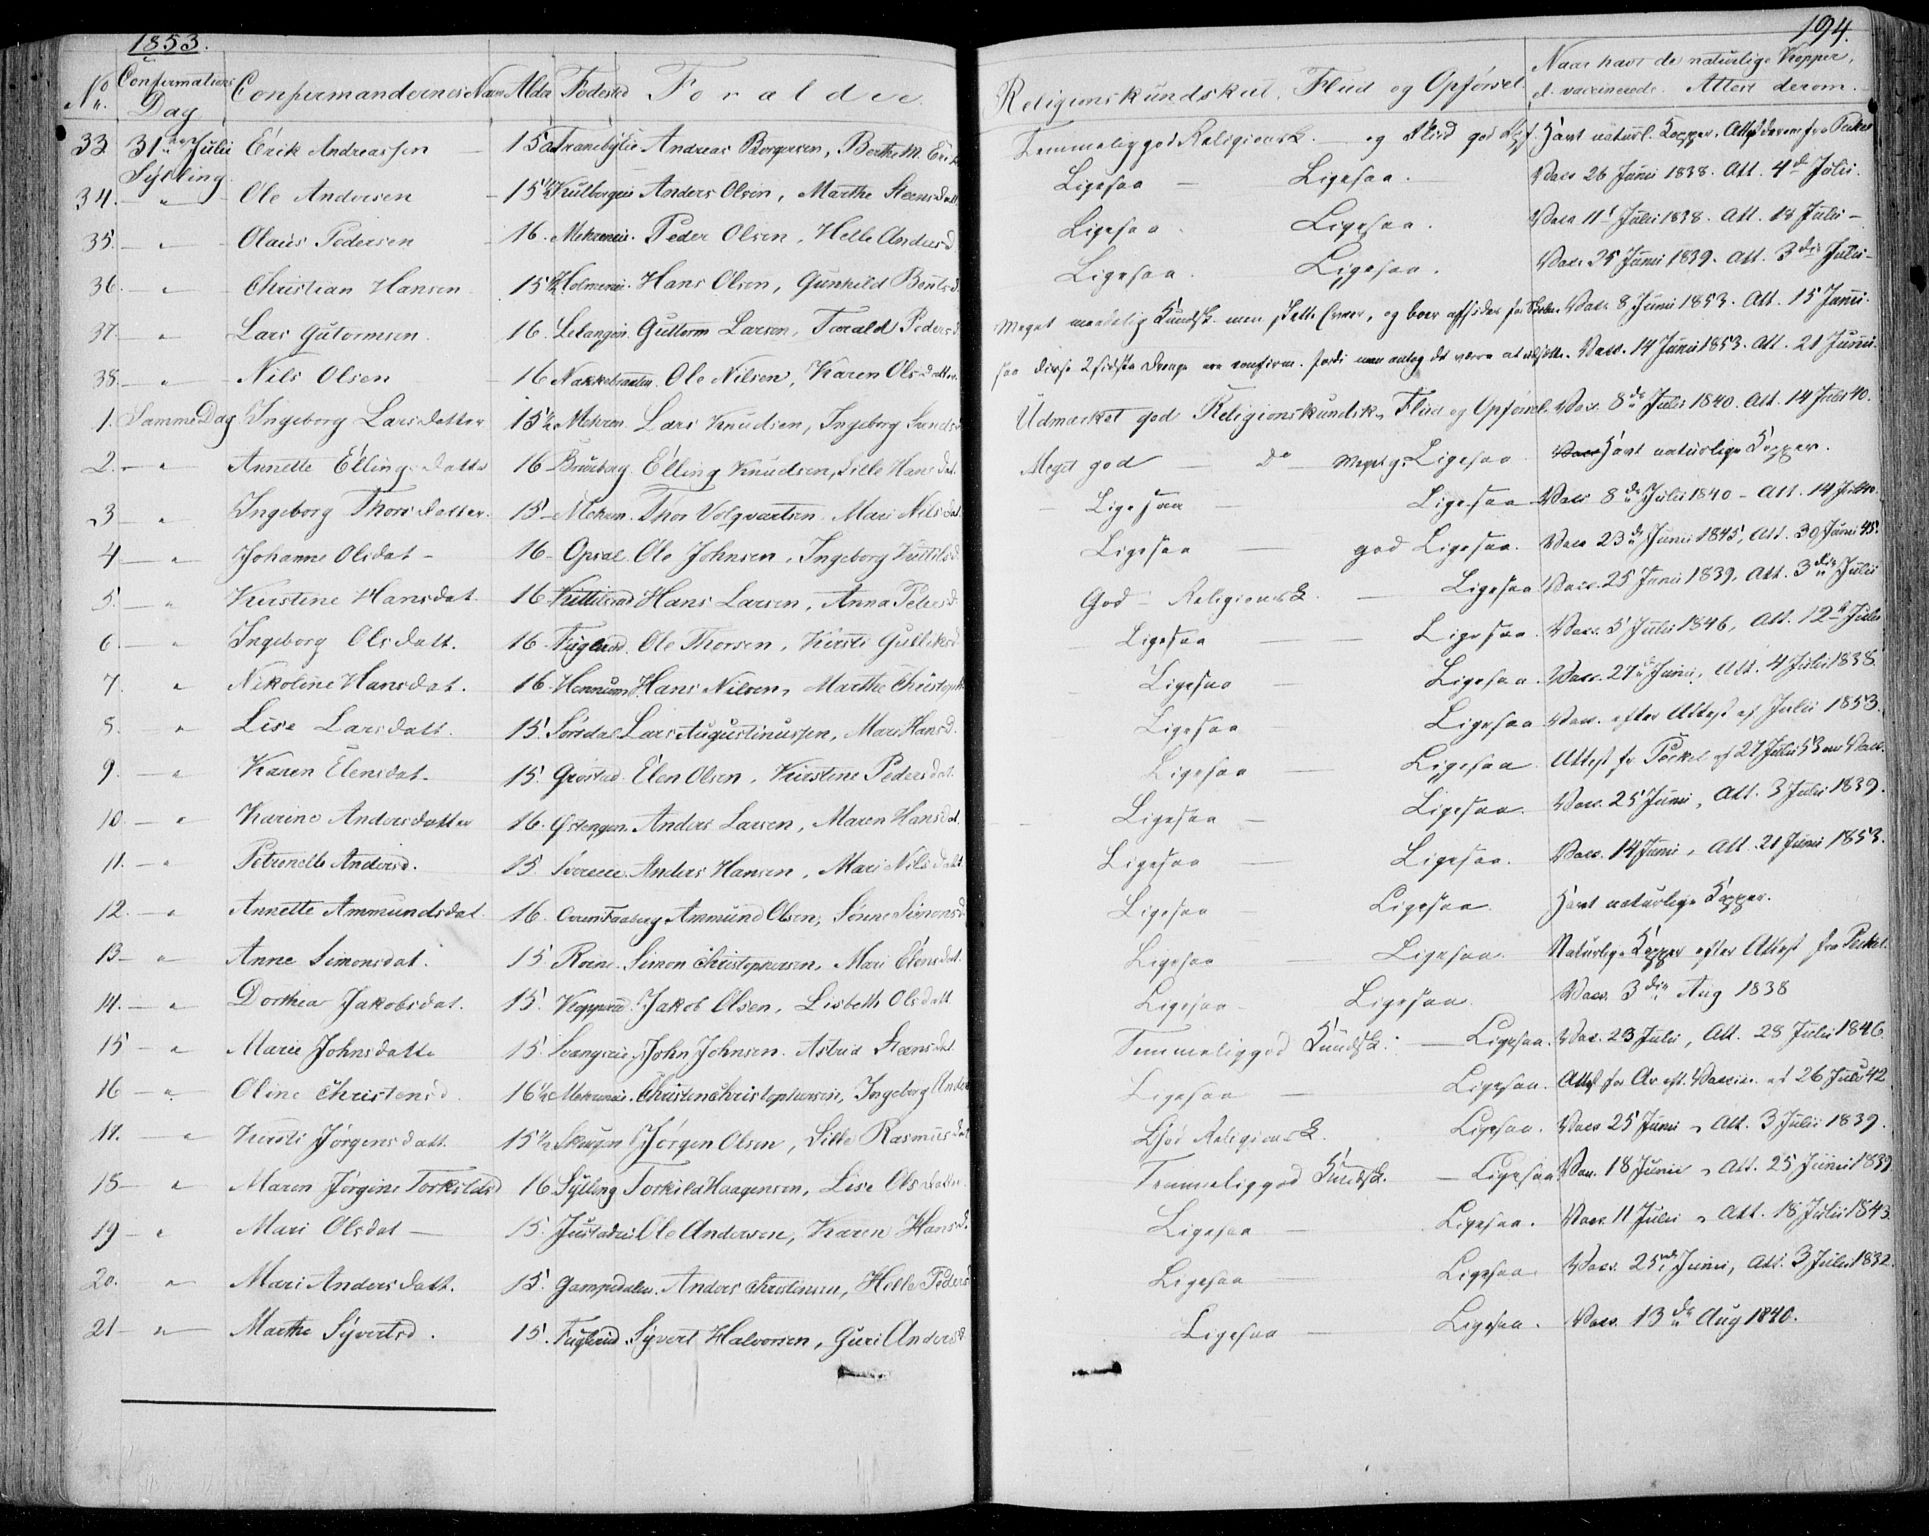 1853.
194.
No Confirmations Dag Confirmandernes Navn Alder Fødested Forældre Religionskundskab, Flid og Opførsel Naar havt de naturlige Kopper, el. vaccinerede. Attest derom.
33 31te Julii Sylling Erik Andreassen 15 Andreas Borgersen, Berthe M. Temmelig god Religionsk. og Flid god Havt naturl. Kopper. Attest derom fra
34. " Ole Andersen 15½ Anders Olsen, Marthe Steensdatt Ligesaa Ligesaa. Vacc 26 Junii 1838. Att. 4de Julii.
35. " Olaus Pedersen 16. Peder Olsen, Helle Andersd Ligesaa. Ligesaa. Vacc 11t Julii 1838. Att. 18 Julii
36. " Christian Hansen 15½ Hans Olsen, Gunhild Bentsd. Ligesaa. Ligesaa. Vacc 25 Junii 1839. Att. 3die Julii
37. " Lars Gutormsen 16. Guttorm Larsen, Torald Pedersd Meget maadelig Kundsk. men Vacc. 8 Junii 1853. Att. 15 Junii.
38. " Nils Olsen 16 Ole Nilsen, Karen Olsdatter. saa disse 2 sidste Drenge ere confirm. Vacc. 14 Junii 1853. Att. 21 Junii.
1. Samme Dag Ingeborg Larsdatter 15½ Mehren Lars Knudsen, Ingeborg Udmærket god Religionskundsk, Flid og Opførsel. Vacc. 8de Julii 1840. Att. 14 Julii 40.
2. " Annette Ellingsdatter 16 Elling Knudsen, Sille Hansdat. Meget god do Meget g. Ligesaa Havt naturlige Kopper.
3 " Ingeborg Thorsdatter. 15 Mehren. Thor Volqvartsen Mari Nilsdat Ligesaa Ligesaa Vacc 8de Julii 1840 - Att. 14 Julii
4 " Johanne Olsdat 16 Opsal Ole Johnsen, Ingeborg Ligesaa god Ligesaa. Vacc 23de Junii 1845, Att. 30 Junii 45.
5. " Kirstine Hansdat. 16 Hans Larsen, Anna Petersd. God Religionsk. Ligesaa Vacc. 25 Junii 1839. Att. 3die Julii
6 " Ingeborg Olsdatt. 16 Fuglerud. Ole Thorsen, Kirsti Gulliksd. Ligesaa Ligesaa. Vacc. 5 Julii 1846, Att. 12 Julii
7. " Nikoline Hansdat. 16 Hennum Hans Nilsen, Marthe Christoph Ligesaa Ligesaa. Vacc. 27 Junii, Att. 4 Julii 1838.
8. " Lise Larsdatt. 15. Sørsdal Lars Augustinussen, Mari Hansd. Ligesaa Ligesaa Vacc. efter Attest af Julii 1853.
9. " Karen Elensdat. 15. Grøstad. Elen Olsen, Kirstine Pedersdat. Ligesaa Ligesaa Attest fr. af 27 Julii 53 om Vacc.
10. " Karine Andersdatter 16. Østengen. Anders Larsen, Maren Hansdat. Ligesaa Ligesaa. Vacc. 25 Junii, Att. 3 Julii 1839.
11. " Petronelle Andersd. 15 Anders Hansen, Mari Nilsdatt Ligesaa Ligesaa. Vacc. 14 Junii, Att. 21 Junii 1853.
12. " Annette Ammundsdat 16. Ammund Olsen, Simonsd Ligesaa Ligesaa Havt naturlige Kopper.
13 " Anne Simonsdat. 15 Simon Christophersen, Mari Elensdat. Ligesaa Ligesaa. Naturlige Kopper efter Attest fra
14. " Dorthea Jakobsdat. 15. Jakob Olsen, Lisbeth Olsdatt Ligesaa Ligesaa. Vacc. 3die Aug 1838
15 " Marie Johnsdatte 15. John Johnsen. Astrid Steensdat. Temmelig god Kundsk. Ligesaa. Vacc. 23 Julii, Att. 28 Julii 1846.
16 " Oline Christensd. 16½ Christen Christophersen, Ingeborg Ligesaa Ligesaa. Attest fr. 26 Julii 42
17. " Kirsti Jørgensdatt. 15½ Jørgen Olsen, Sille Rasmusdat God Religionsk. Ligesaa. Vacc 25 Junii, Att. 3 Julii 1839.
18 " Maren Jørgine Torkildsd 16 Sylling Torkild Haagensen, Lise Olsdatter Temmelig god Kundsk. Ligesaa Vacc. 18 Junii, Att. 25 Junii 1839
19 " Mari Olsdat 15. Ole Andersen, Karen Hansd. Ligesaa Ligesaa. Vacc. 11 Julii, Att. 18 Julii 1843.
20. " Mari Andersdatt. 15. Anders Christensen, Helle Pedersd Ligesaa Ligesaa Vacc. 25 Junii, Att. 3 Julii 1832.
21 " Marthe Syvertsd. 15. Fuglerud. Syvert Halvorsen, Guri Andersd Ligesaa Ligesaa. Vacc. 13de Aug 1840.